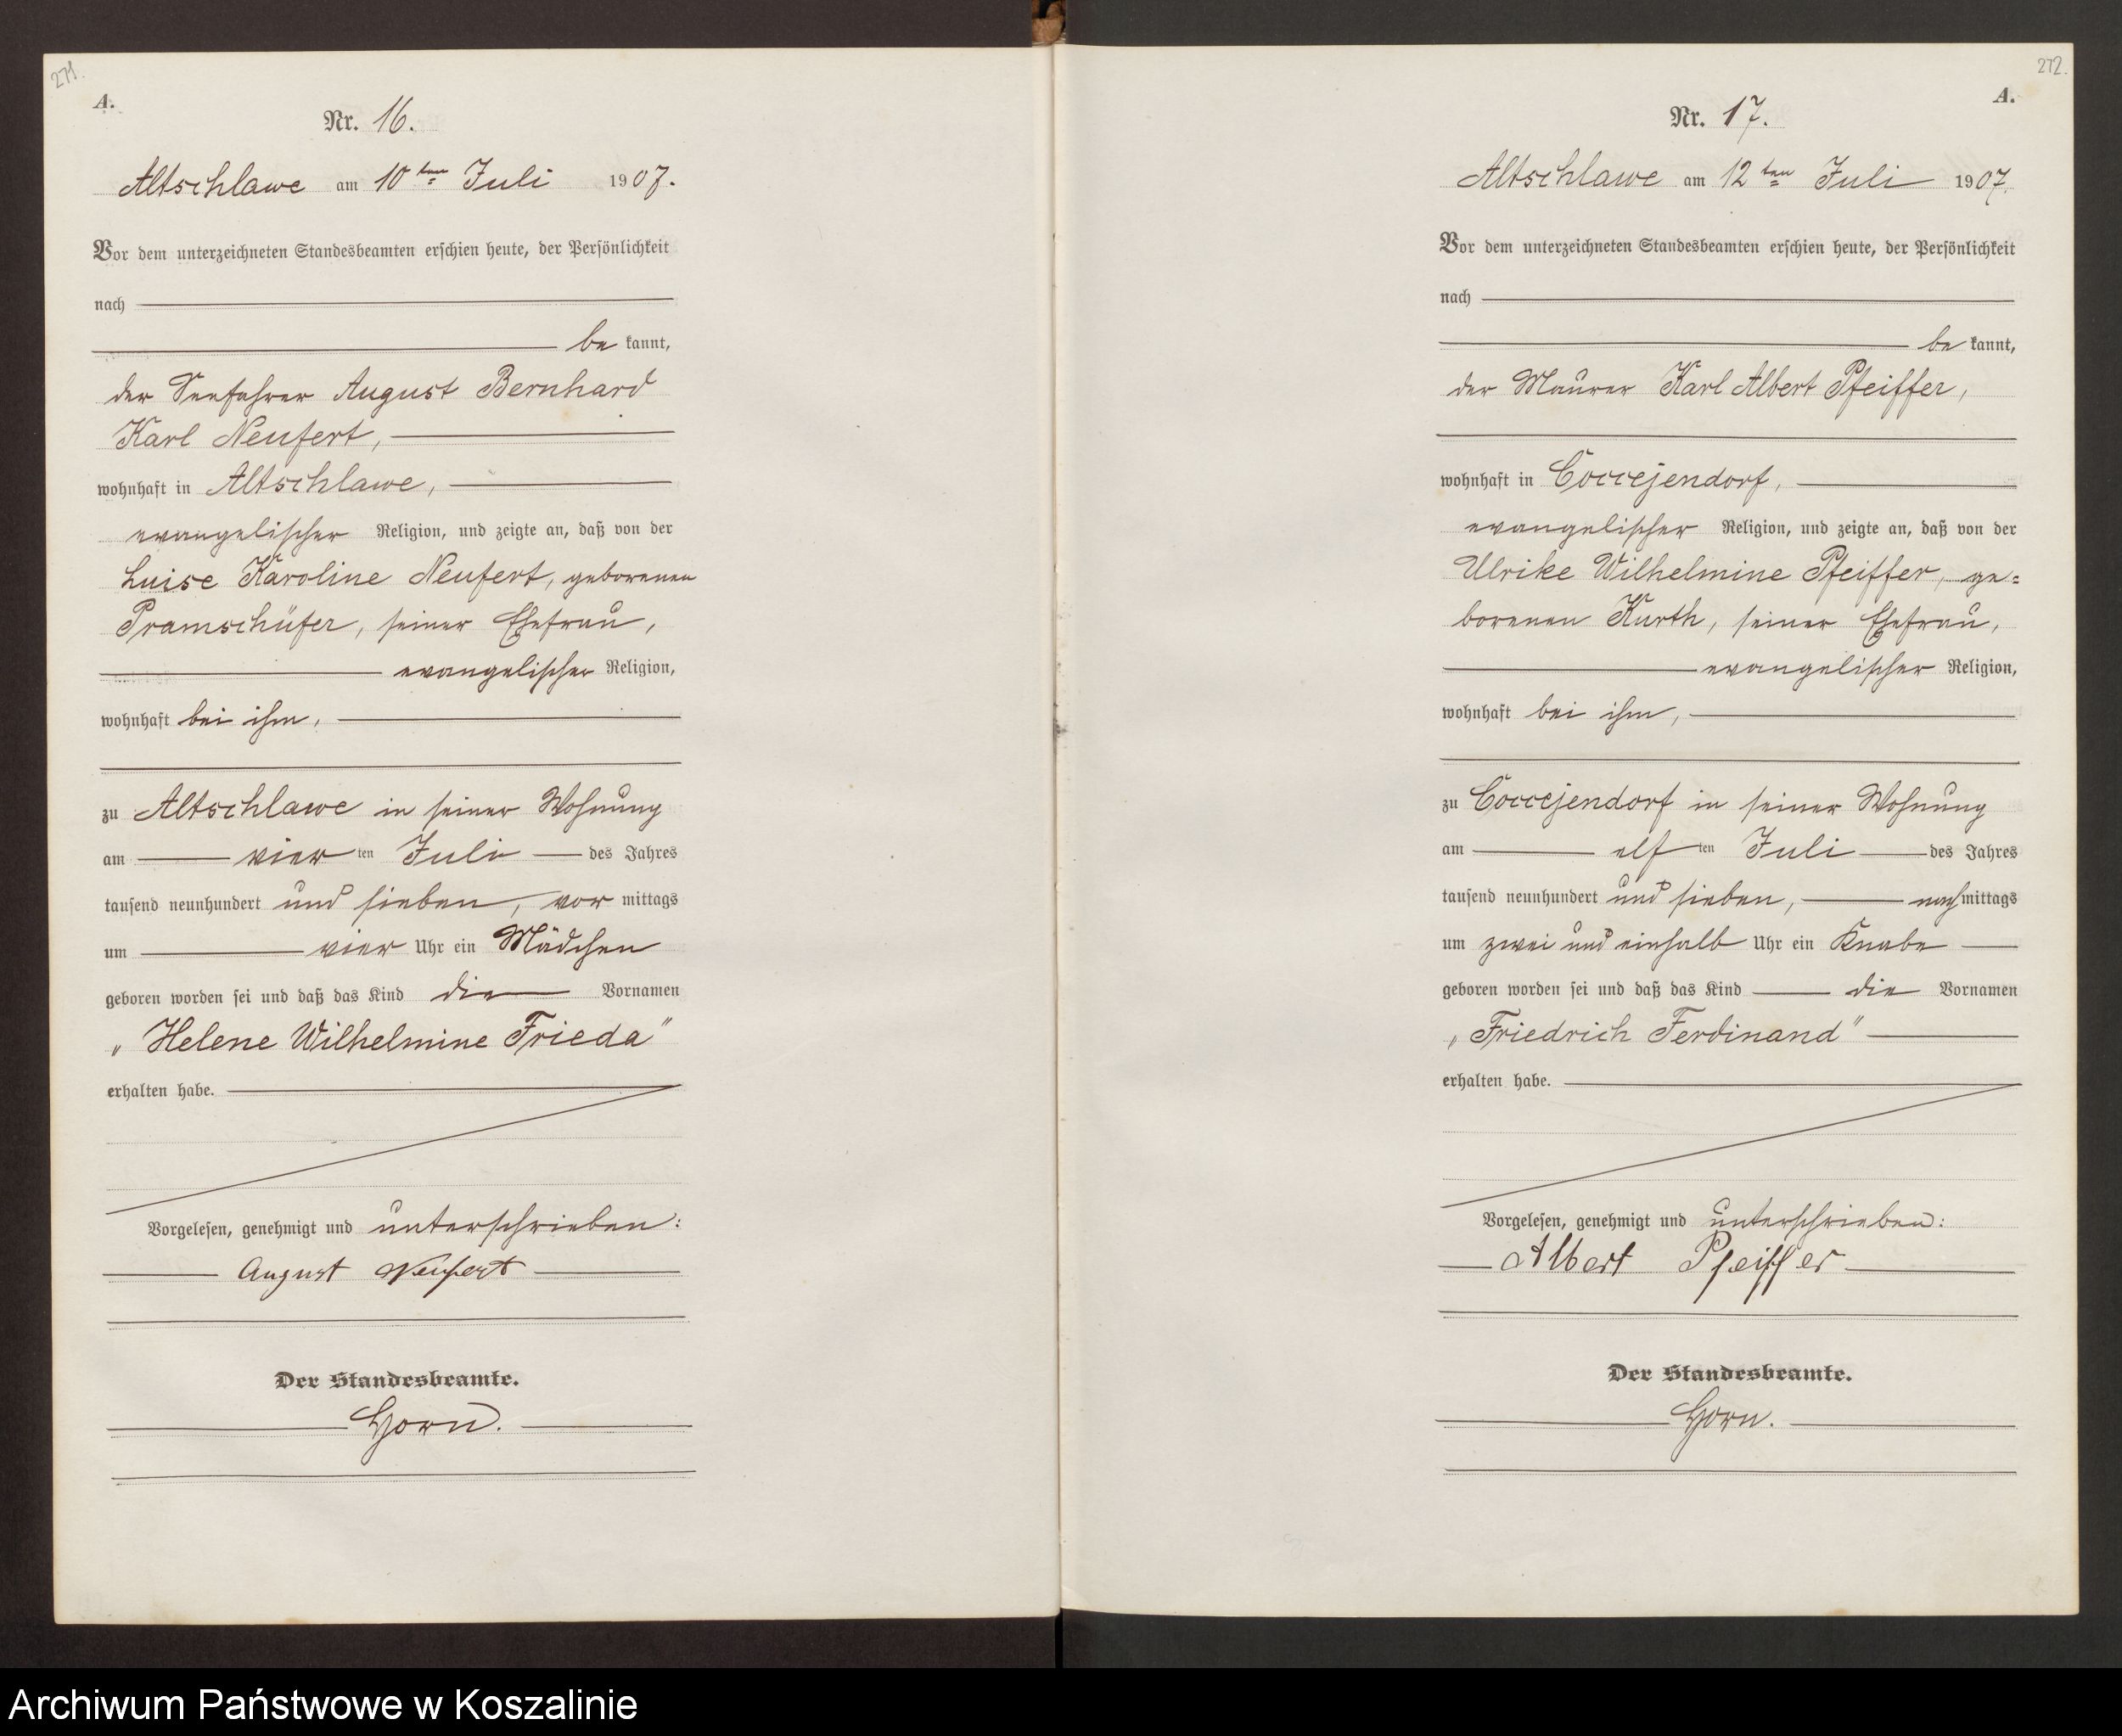 271.
A.
Nr. 16.
Altschlawe am 10ten Juli 1907.
Vor dem unterzeichneten Standesbeamten erschien heute, der Persönlichkeit
nach
be kannt,
der Seefahrer August Bernhard
Karl Neufert,
wohnhaft in Altschlawe,
evangelischer Religion, und zeigte an, daß von der
Luise Karoline Neufert, geborenen
Pramschüfer, seiner Ehefrau,
evangelischer Religion,
wohnhaft bei ihm,
zu Altschlawe in seiner Wohnung
am vier ten Juli des Jahres
tausend neunhundert und sieben, vor mittags
um vier Uhr ein Mädchen
geboren worden sei und daß das Kind die Vornamen
„Helene Wilhelmine Frieda"
erhalten habe.
Vorgelesen, genehmigt und unterschrieben:
August Neufert
Der Standesbeamte.
Horn.
272.
A.
Nr. 17.
Altschlawe am 12ten Juli 1907.
Vor dem unterzeichneten Standesbeamten erschien heute, der Persönlichkeit
nach
be kannt,
der Maurer Karl Albert Pfeiffer,
wohnhaft in Coccejendorf,
evangelischer Religion, und zeigte an, daß von der
Ulrike Wilhelmine Pfeiffer, ge=
borenen Kurth, seiner Ehefrau,
evangelischer Religion,
wohnhaft bei ihm,
zu Coccejendorf in seiner Wohnung
am elf ten Juli des Jahres
tausend neunhundert und sieben, nach mittags
um zwei und einhalb Uhr ein Knabe
geboren worden sei und daß das Kind die Vornamen
„Friedrich Ferdinand"
erhalten habe.
Vorgelesen, genehmigt und unterschrieben:
Albert Pfeiffer
Der Standesbeamte.
Horn.
Archiwum Państwowe w Koszalinie